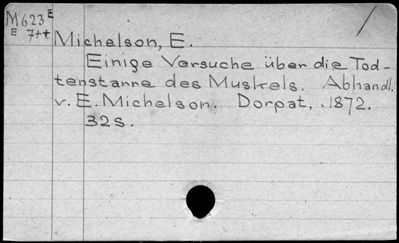 M623E
E 7++
Michelson, E.
Einige Versuche über die Tod-
tenstarre des Muskels. Abhandl.
v. E. Michelson. Dorpat, 1872.
32s.